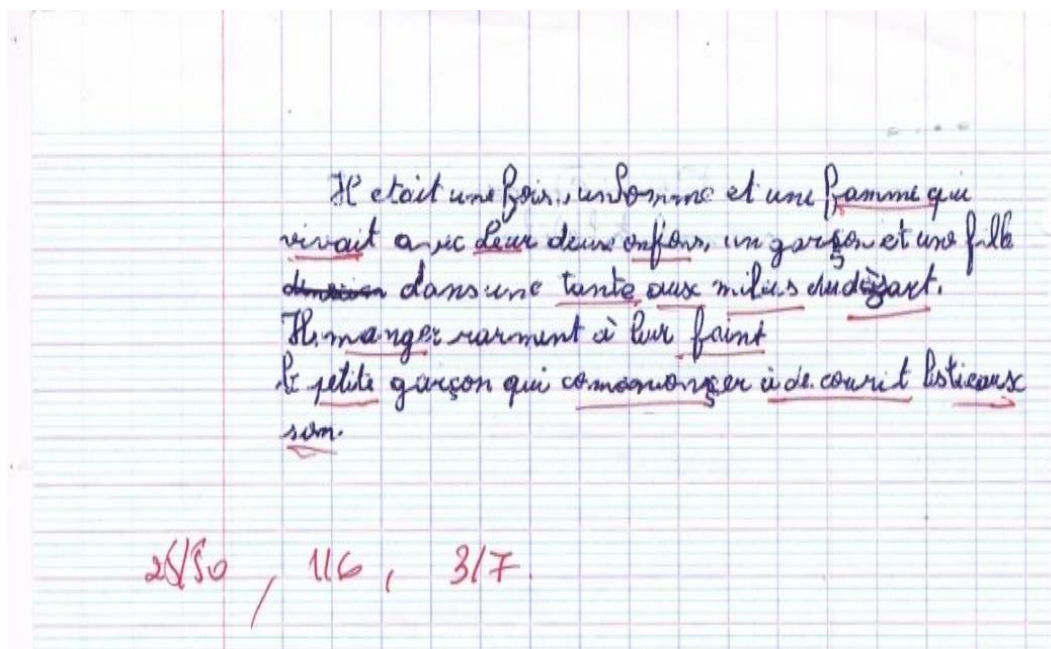 Il etait une fois, un homme et une famme qui
vivait avec leur deux enfans, un garçon et une fille
dans une tante aux milius du dèsart.
Il manger rarment à leur faint
le petite garçon qui comomonçer à de courit listieaux
son.
25/50, 1/6, 3/7.